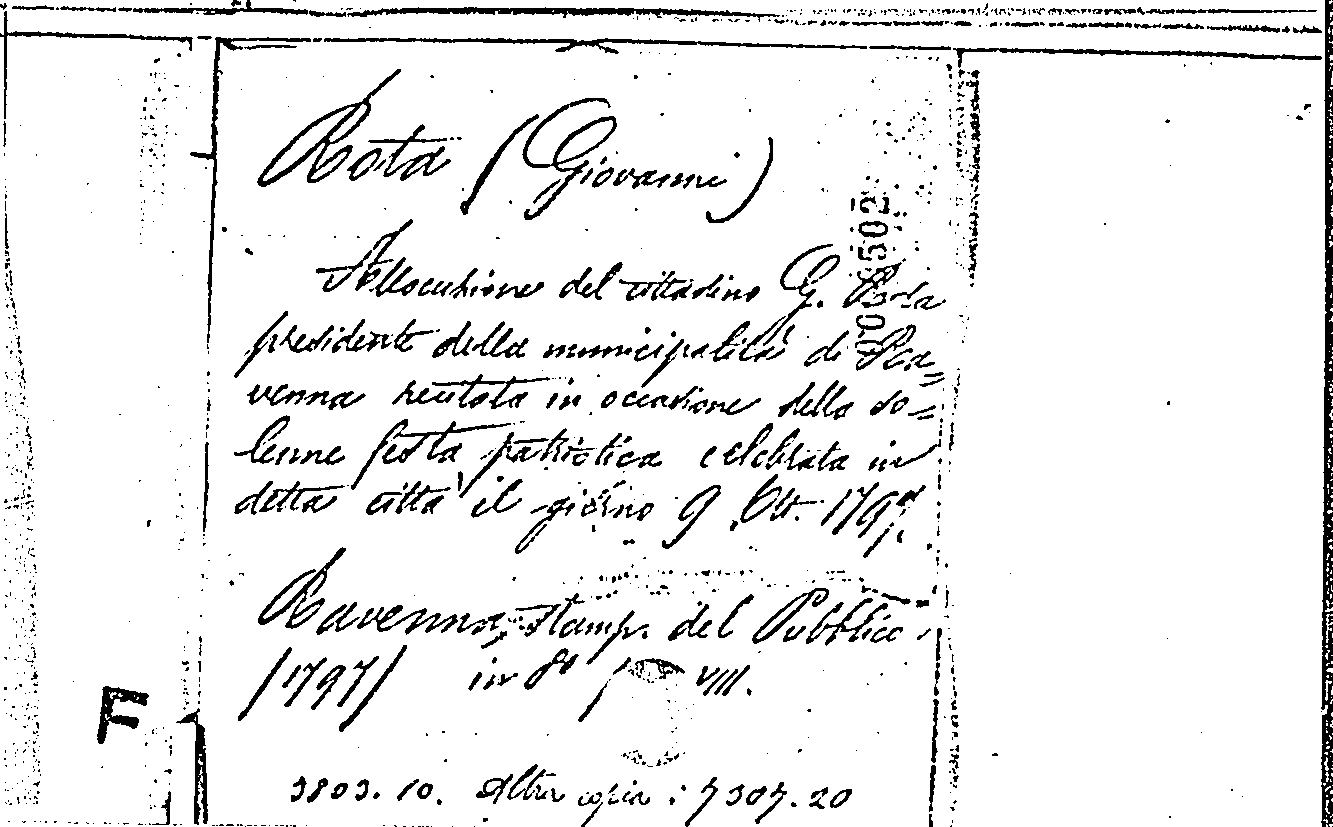 Rota (Giovanni)
Allocuzione del cittadino G. Rota
presidente della municipalità di Ra=
venna recitata in occasione della so=
lenne festa patriotica celebrata in
detta città il giorno 9 Ott. 1797.
Ravenna, stamp. del Pubblico,
(1797) in 8º p. VIII.
F
3803.10. Altra copia: 7307.20